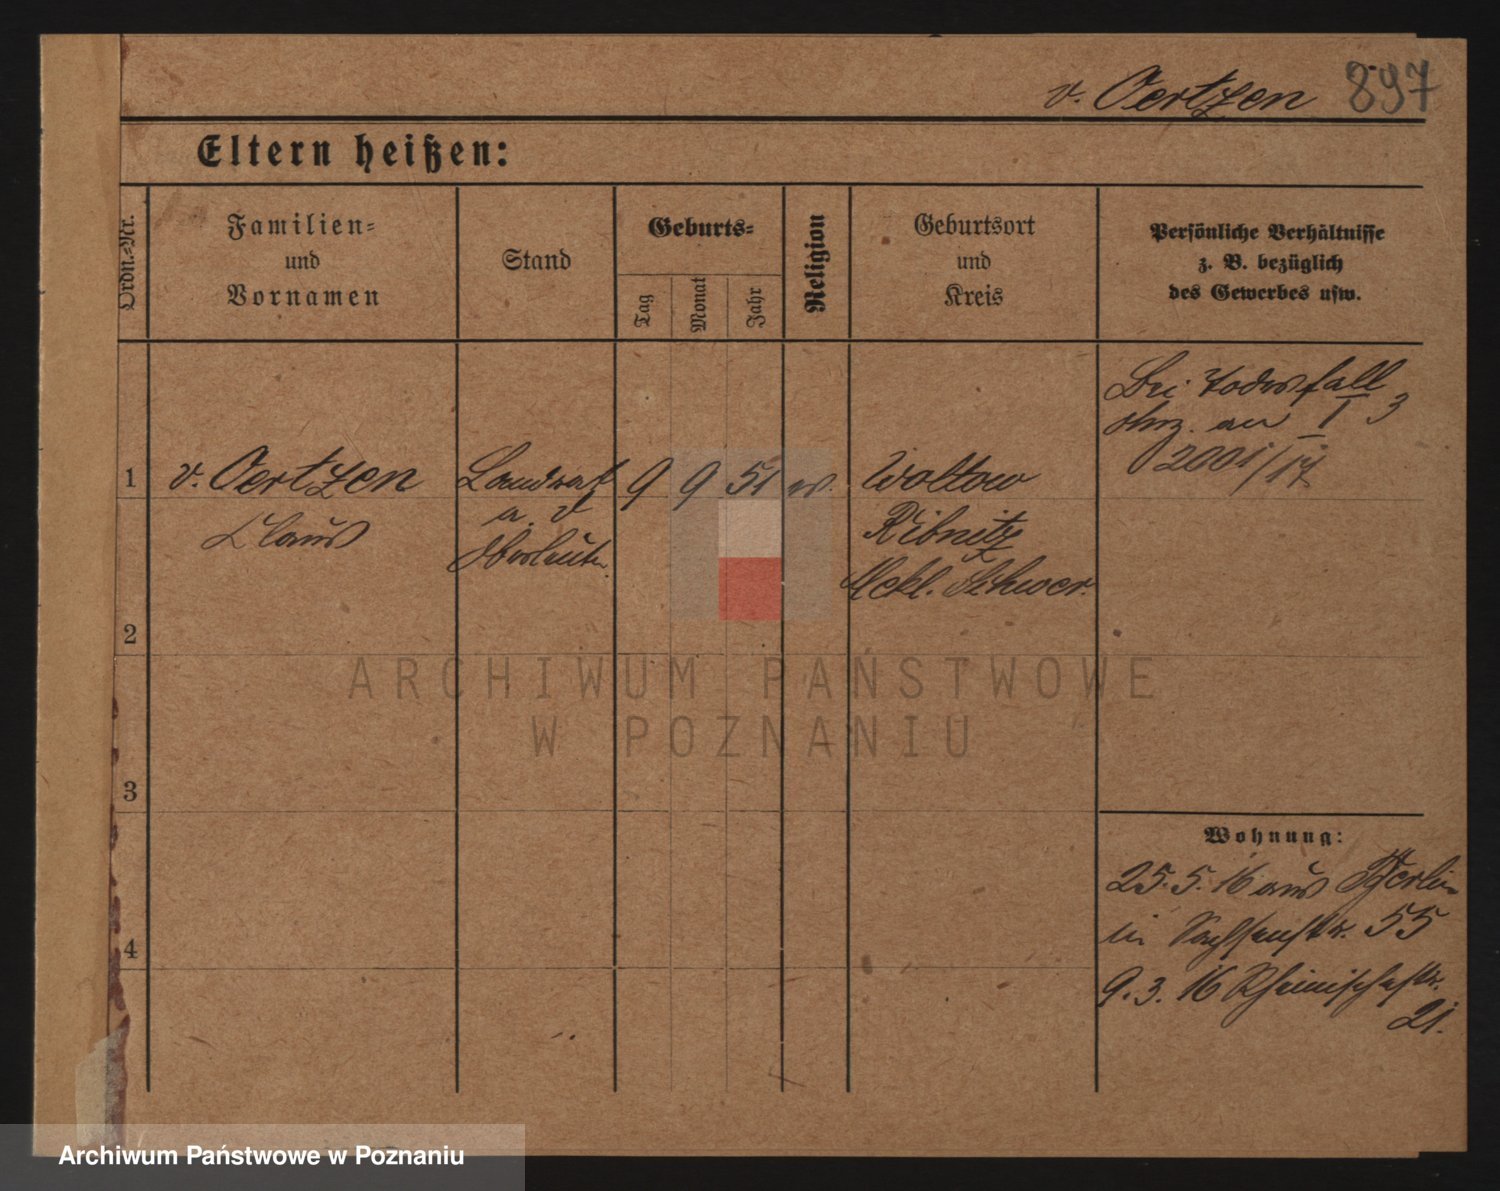 v. Oertzen 897
Eltern heißen:
Ordn.-Nr.
Familien-
und
Vornamen
Stand
Geburts-
Tag
Monat
Jahr
Religion
Geburtsort
und
Kreis
Persönliche Verhältnisse
z. B. bezüglich
des Gewerbes usw.
Bei Todesfall
an I 3
2001/17
1 v. Oertzen Landrat 9 9 51 Woltow
Claus a. D Ribnitz
Oberleutn. Meckl. Schwer.
2
3
4
Wohnung:
25.5.16 aus Berlin
in Sachsenstr. 55
9.3.16 Rheinischestr.
21.
ARCHIWUM PAŃSTWOWE
W POZNANIU
Archiwum Państwowe w Poznaniu